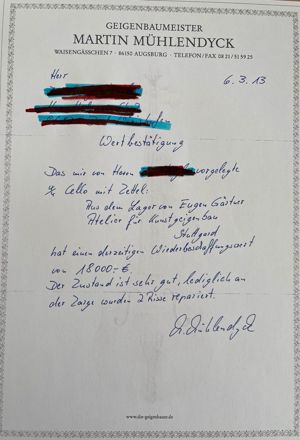 GEIGENBAUMEISTER
MARTIN MÜHLENDYCK
WAISENGÄSSCHEN 7 · 86150 AUGSBURG · TELEFON/FAX 08 21/51 59 25
Herr
6.3.13
Wertbestätigung
Das mir von Herrn vorgelegte
Cello mit Zettel:
Aus dem Lager von Eugen Gärtner
Atelier für Kunstgeigenbau
Stuttgard
hat einen derzeitigen Wiederbeschaffungswert
von 18000.-€.
Der Zustand ist sehr gut, lediglich an
der Zarge wurden 2 Risse repariert.
M. Mühlendyck
www.der-geigenbauer.de